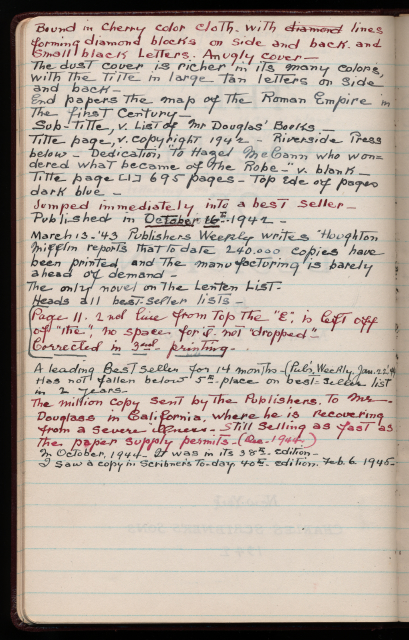 Bound in Cherry color cloth. with diamond lines
forming diamond blocks on side and back. and
Small black Letters. An ugly cover—
The dust cover is richer in its many colors,
with the Title in large tan letters on side
and back—
End papers the map of the Roman Empire in
the first Century—
Sub-Title, v. List of Mr Douglas' Books.—
Title page, v. copyright 1942 - Riverside Press
below — Dedication "To Hazel McCann who won-
dered what became of the Robe" v. blank—
Title page [1] 695 pages — Top edge of pages
dark blue —
Jumped immediately into a best seller—
Published in October 16th 1942—
March 13-'43 Publishers Weekly writes "Houghton
Mifflin reports that to date 240.000 copies have
been printed and the manufacturing is barely
ahead of demand —
The only novel on the Lenten List—
Heads all best-seller lists —
Page 11. 2nd line from top the "E", is left off
of "the" no space for it. not "dropped"—
Corrected in 3rd printing.
A leading Best seller for 14 months - (Pub's Weekly, Jan. 22
Has not fallen below 5th place on best-seller list
in 2 years—
The million copy sent by the Publishers. To Mr—
Douglass in California, where he is recovering
from a severe illness— Still selling as fast as
the paper supply permits- (Dec-1944)
In October, 1944- It was in its 38th edition—
I saw a copy in Scribners To-day, 40th edition. Feb. 6. 1945—